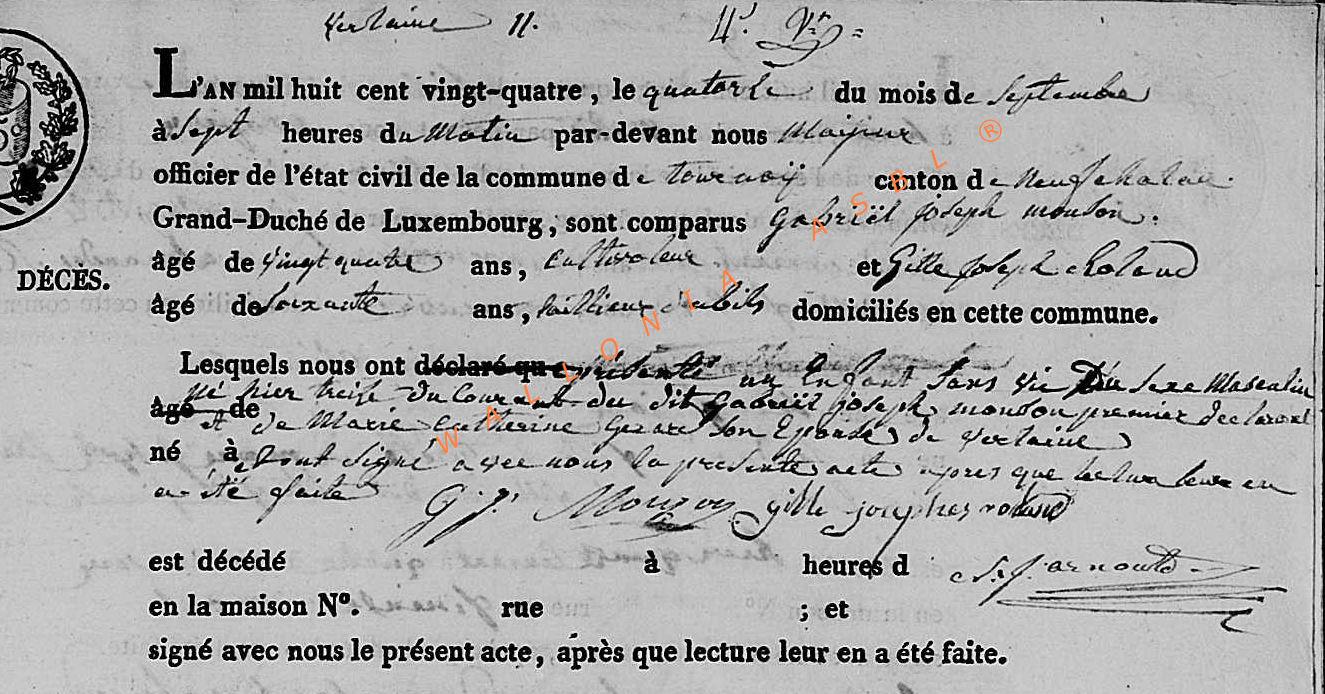 Verlaine 11. 4e. Vn =
L'AN mil huit cent vingt-quatre, le quatorze du mois de Septembre
à Sept heures du Matin par-devant nous Maÿeur
officier de l'état civil de la commune de tournaÿ canton de neufchateau.
Grand-Duché de Luxembourg, sont comparus Gabriël joseph monson.
âgé de Vingt quatre ans, Cultivateur et Gille joseph roland
DÉCÈS.
âgé de Soixante ans, tailleur d'abits domiciliés en cette commune.
Lesquels nous ont déclaré que présenté un Enfant Sans Vie Du Sexe Masculin
né hier treize du Courant du dit Gabriël joseph monson premier declarant
âgé de
et de Marie Catherine Gerard son Epouse de Verlaine
né à
et ont signé avec nous la presente acte apres que lecture leur en
a été faite
G. J. Monzon gille josephes roland
est décédé à heures d arnould
en la maison No. rue ; et
signé avec nous le présent acte, après que lecture leur en a été faite.
WALLONIA ASBL ®